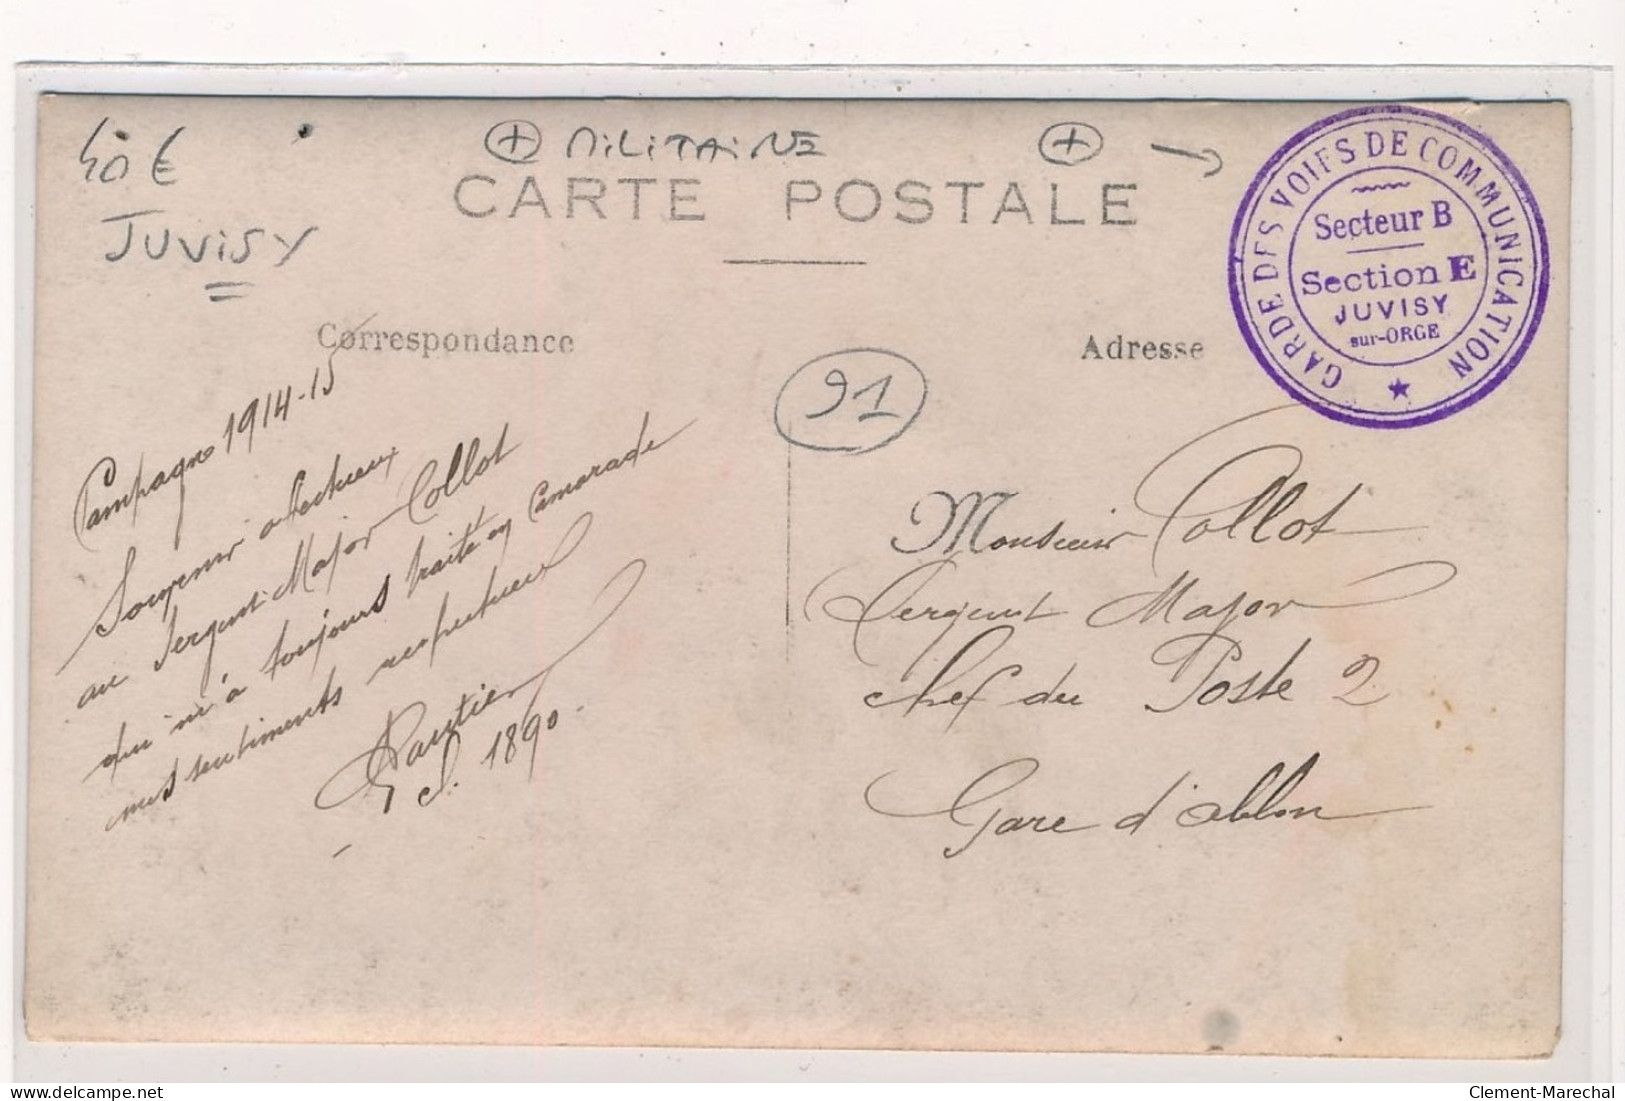 40 €
MILITAIRE
JUVISY
CARTE POSTALE
GARDE DES VOIES DE COMMUNICATION
Secteur B
Section E
JUVISY
sur-ORGE
Correspondance
Adresse
91
Campagne 1914-15
Souvenir affectueux
au Sergent-Major Collot
qui m'a toujours traité en Camarade
mes sentiments respectueux
Gautier
cl. 1890.
Monsieur Collot
Sergent Major
Chef du Poste 2
Gare d'Ablon
delcampe.net
Clement-Marechal